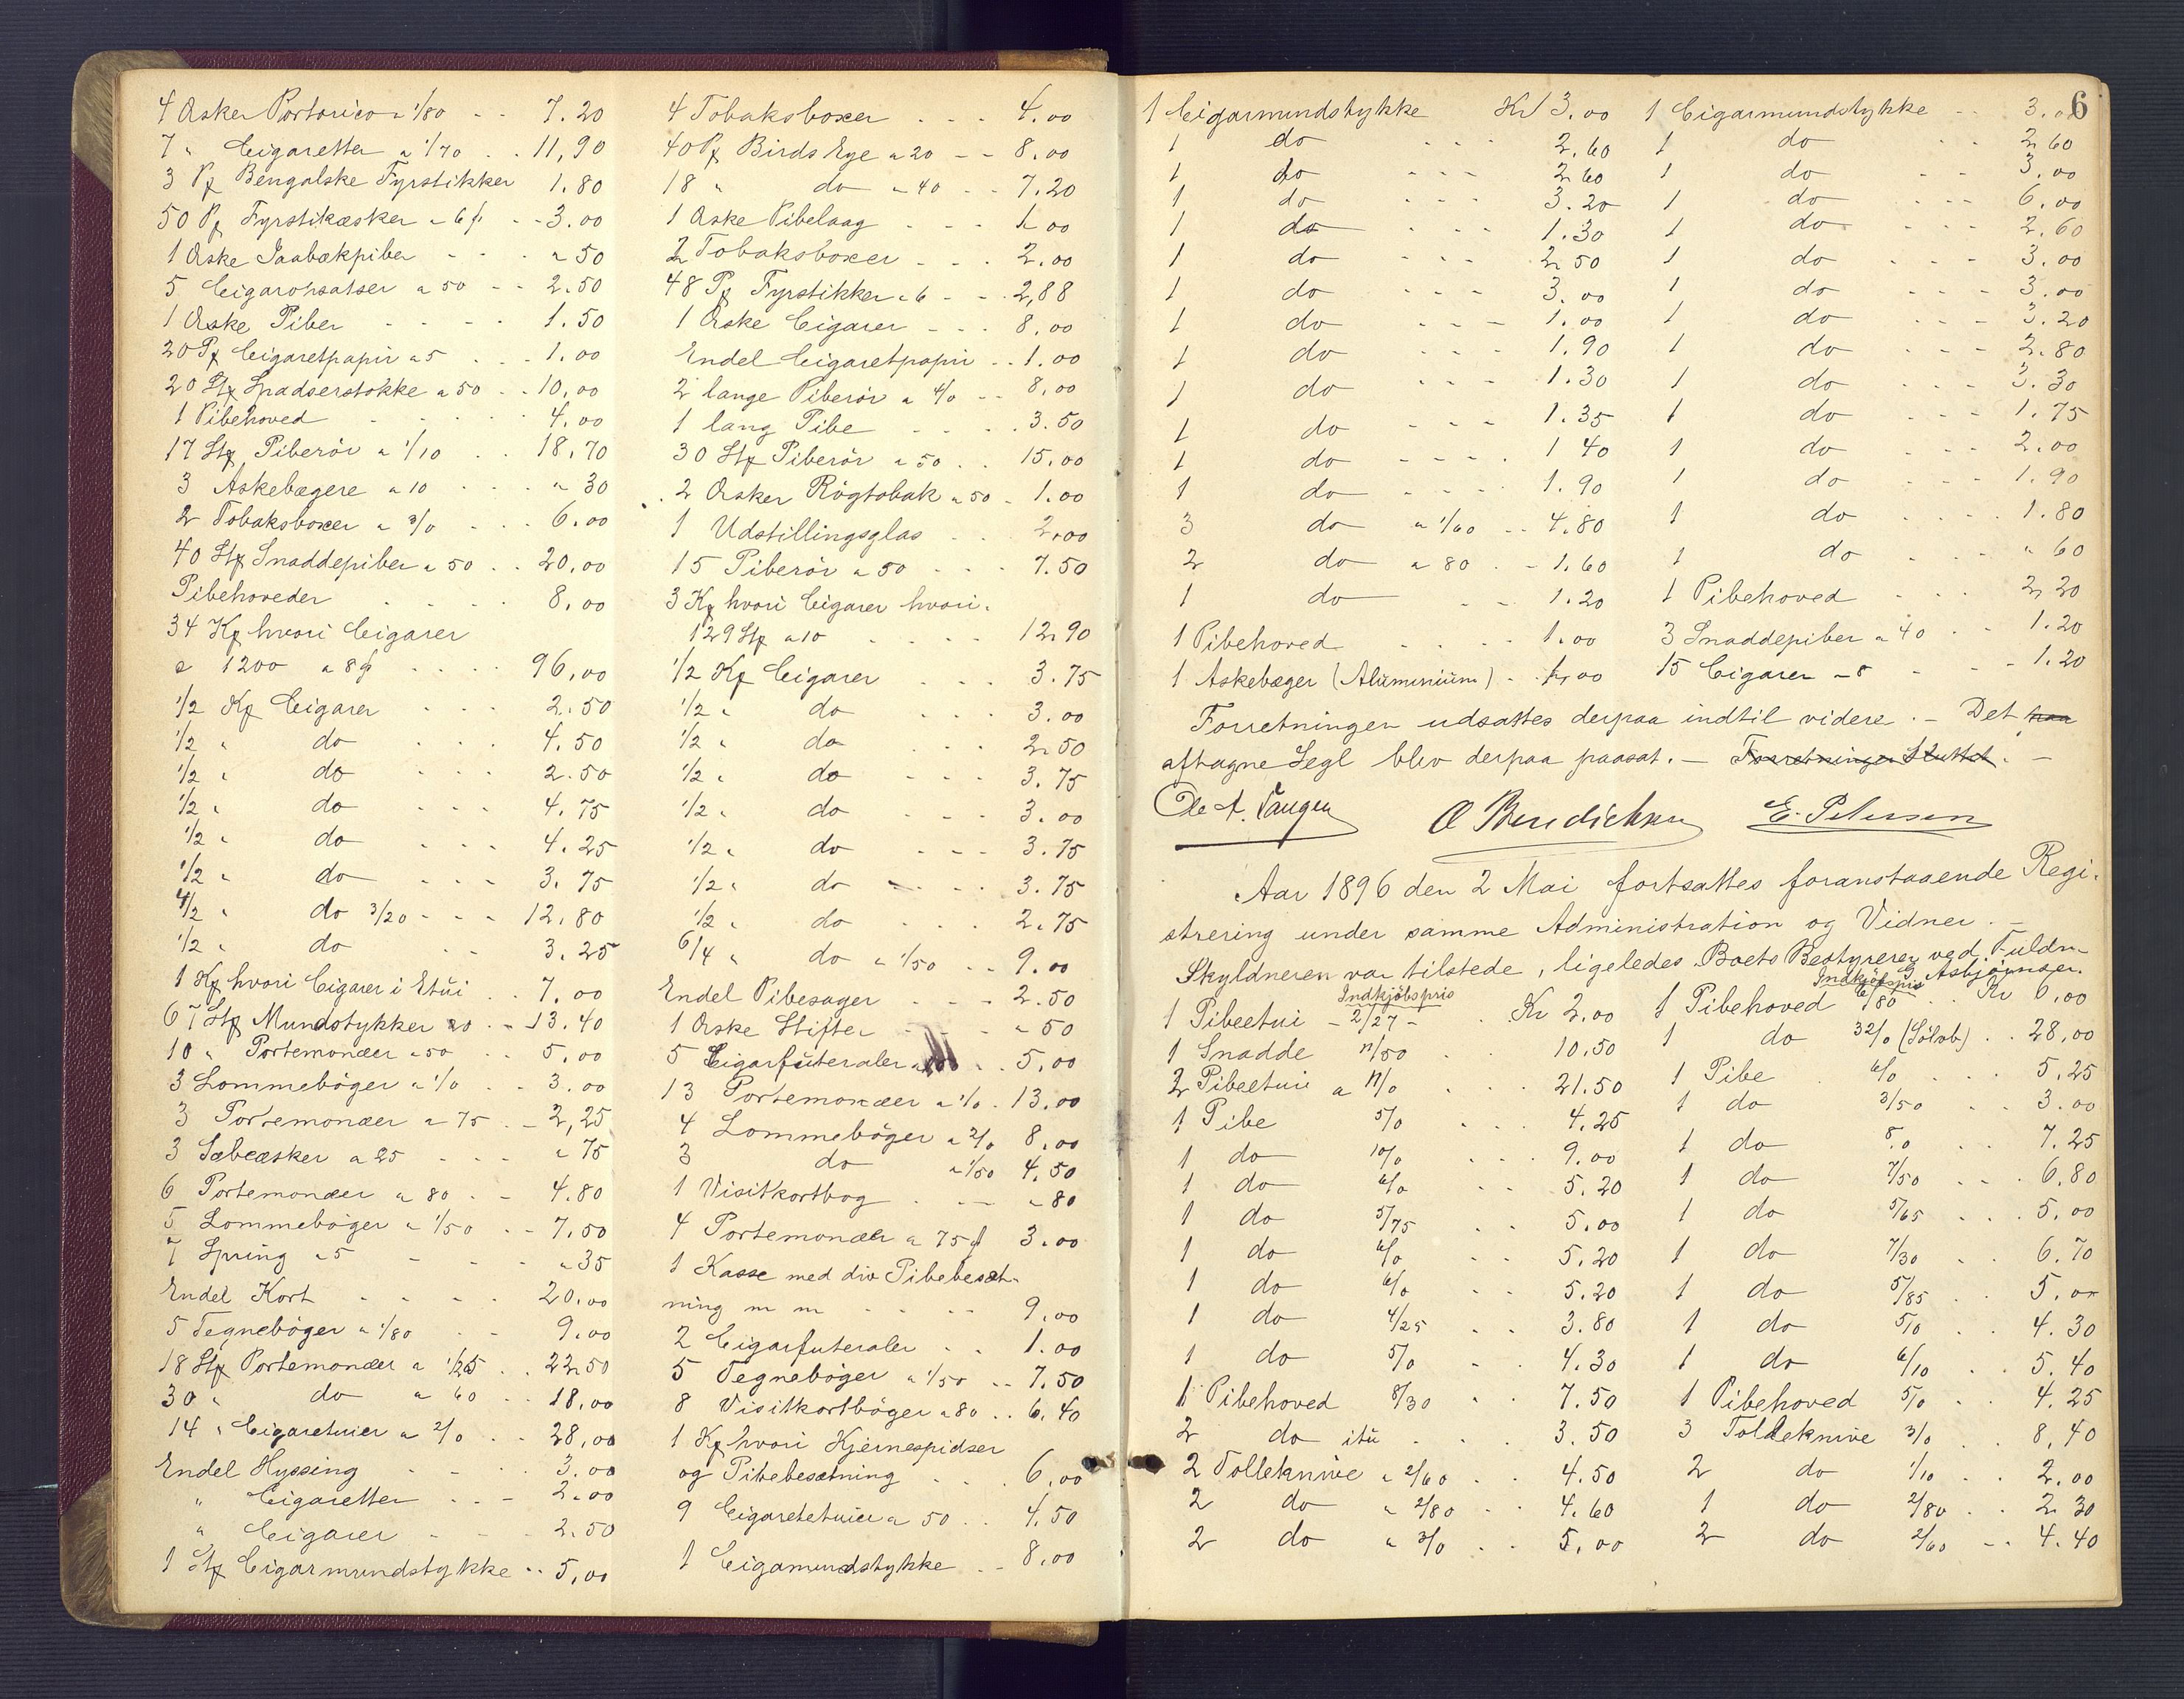 4 Æsker Portorico a 1/80 - - 7.20
7 " Cigaretter a 1/70 . . 11,90
3 Pk Bengalske Fyrstikker 1.80
50 Pk Fyrstikæsker a 6 ø - - 3.00
1 Æske Jaabækpiber - - - " 50
5 Cigarohsatser a 50 - - 2.50
1 Æske Piber - - - - 1.50
20 Pk Cigaretpapir a 5 . . . 1.00
20 Stk Spadserstokke a 50 . - 10,00
1 Pibehoved - - - - 4.00
17 Stk Piberör a 1/10 . . 18.70
3 Askebægere a 10 . . . " 30
2 Tobaksboxer a 3/0 . . . 6.00
40 Stk Snaddepiber a 50 . . 20,00
Pibehoveder . . . . 8.00
34 Ks hvori Cigarer
c 1200 a 8 ø . . . . 96,00
1/2 Ks Cigarer . . . 2.50
1/2 " do . . . 4.50
1/2 " do . . . 2.50
1/2 " do . . . 4.75
1/2 " do . . . 4.25
1/2 " do . . . 3.75
4/2 " do 3/20 - - - 12.80
1/2 " do - - 3.25
1 Ks hvori Cigarer i Etui . . 7.00
67 Stk Mundstykker 20 . - 13.40
10 " Portemonæer a 50 . . 5,00
3 Lommeböger a 1/0 . . 3.00
3 Portemonæer a 75 . - 2,25
3 Sæbeæsker a 25 - - - " 75
6 Portemonæer a 80 . - 4.80
5 Lommeböger a 1/50 . - 7.50
7 Spring a 5 - - - " 35
Endel Kort - - - - 20.00
5 Tegneböger a 1/80 . - 9.00
18 Stk Portemonæer a 1/25 . . 22.50
30 " do a 60 . . 18.00
14 " Cigaretuier a 2/0 . . 28,00
Endel Hyssing - - - 3.00
" Cigaretter . . - 2.00
" Cigarer - - - 2.50
1 Stk Cigarmundstykke . . 5,00
4 Tobaksboxer . . . 4.00
40 Pk Birds Eye a 20 - - 8.00
18 " do a 40 . . . 7.20
1 Æske Pibelaag . - - 1.00
2 Tobaksboxer . . . 2.00
48 Pk Fyrstikker a 6 - - . 2,88
1 Æske Cigarer - - . 8.00
Endel Cigaretpapir . . 1.00
2 lange Piberör a 4/0 - - 8.00
1 lang Pibe - - - . 3.50
30 Stk Piberör a 50 . . 15.00
2 Æsker Rögtobak a 50 . 1.00
1 Udstillingsglas . . . 2.00
15 Piberör a 50 - - - 7.50
3 Ks hvori Cigarer hvori.
129 Stk a 10 . . . . 12.90
1/2 Ks Cigarer . . . 3.75
1/2 " do . . . 3.00
1/2 " do . . . 2.50
1/2 " do . . . 3.75
1/2 " do . . . 3.00
1/2 " do . - - 3.75
1/2 " do - . . . 3.75
1/2 " do . . . 2.75
6/4 " do a 1/50 . . 9.00
Endel Pibesager - - - 2.50
1 Æske Stifter - - - " 50
5 Cigarfuteraler . . 5.00
13 Portemonæer a 1/0 . 13.00
4 Lommeböger a 2/0 8.00
3 do a 1/50 4.50
1 Visitkortbog . - - " 80
4 Portemonæer a 75 ø 3.00
1 Kasse med div Pibebesæt-
ning m m - - - - 9.00
2 Cigarfuteraler . . 1.00
5 Tegneböger a 1/50 . . 7.50
8 Visitkortböger a 80 . . 6.40
1 Ks hvori Kjernespidser
og Pibebesætning . . 6.00
9 Cigaretetuier a 50 . . 4.50
1 Cigamundstykke . - 8.00
6
1 Cigarmundstykke Kr 3.00
1 do . . . 2.60
1 do . . . 2.60
1 do . . . 3.20
1 do . . . 1.30
1 do . . . 2.50
1 do . . . 3.00
1 do . . . 1.00
1 do . . . 1.90
1 do . . . 1.30
1 do . . . 1.35
1 do . . . 1 40
1 do . . . 1.90
3 do a 1/60 . . 4.80
2 do a 80 . - 1.60
1 do - - 1.20
1 Pibehoved . . . . 1.00
1 Askebæger (Aluminium) - 1.00
1 Cigarmundstykke - - 3.
1 do . . 2.60
1 do - - 3.00
1 do - - - 6.00
1 do . . . 2.60
1 do . . . 3.00
1 do . . . 3.00
1 do . . . 3.20
1 do . . . 2.80
1 do . . . 3.30
1 do . . . 1.75
1 do . . . 2.00
1 do . . . 1.90
1 do . . . 1.80
1 do . . . " 60
1 Pibehoved . . . 2.20
3 Snaddepiber a 40 . . 1.20
15 Cigarer a 8 - - - 1.20
Forretningen udsattes derpaa indtil videre. - Det paa
aftagne Segl blev derpaa paasat. - Forretningen Sluttet. -
Ole A. Tangen O Bendichsen E. Petersen
Aar 1896 den 2 Mai fortsattes foranstaaende Regi-
strering under samme Administration og Vidner. -
Skyldneren var tilstede, ligeledes Boets Bestyrer ved Fuldm.
G. Asbjörnsen.
Indkjöbspris
1 Pibeetui - 2/27 - . Kr 2.00
1 Snadde 11/50 . . 10.50
2 Pibeetuie a 11/0 . . . 21.50
1 Pibe 5/0 . . . 4.25
1 do 10/0 . . 9.00
1 do 6/0 . . 5.20
1 do 5/75 . . 5.00
1 do 6/0 . . 5.20
1 do 6/0 . . 5.20
1 do 4/25 . . 3.80
1 do 5/0 . . 4.30
1 Pibehoved 8/30 . . 7.50
2 do itu . . . 3.50
2 Tolleknive a 2/60 . . 4.50
2 do a 2/80 . . 4.60
2 do a 3/0 . . 5.00
Indkjöbspris
1 Pibehoved 6/80 . . Kr 6.00
1 do 32/0 (Sölvb) . . 28,00
1 Pibe 6/0 . . . 5.25
1 do 3/50 . . 3.00
1 do 8.0 . . 7.25
1 do 7/50 . . . 6.80
1 do 5/65 . . . 5.00
1 do 7/30 . . 6.70
1 do 5/85 . . 5.00
1 do 5/0 . . 4.30
1 do 6/10 . . 5.40
1 Pibehoved 5/0 . . 4.25
3 Tolleknive 3/0 . . 8,40
2 do 1/10 . . 2.00
1 do 2/80 . . 2.30
2 do 2/60 . . 4.40